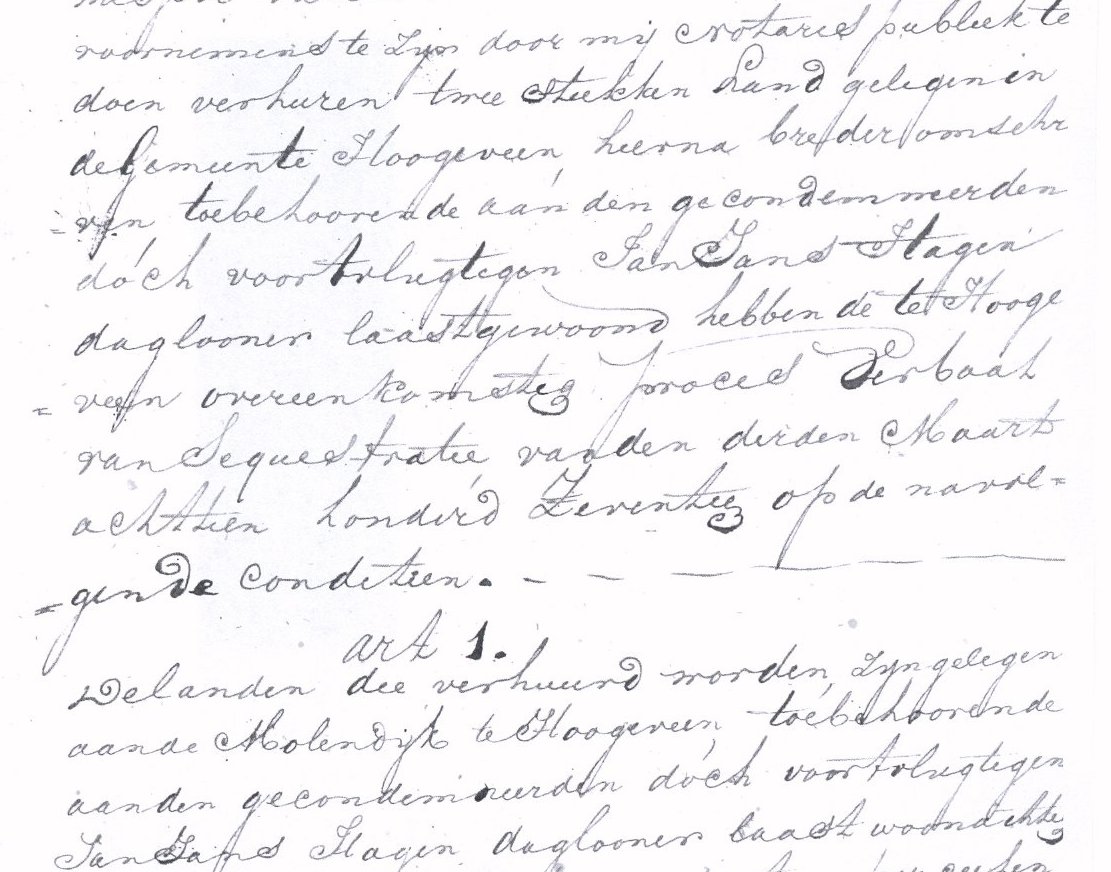 voornemens te zijn door mij Notaris publiek te
doen verhuren twee stukken Land gelegen in
de Gemeente Hoogeveen, hierna breder omschr
= ven toebehoorende aan den gecondemneerden
doch voortvlugtigen Jan Jans Hagen
daglooner laast gewoond hebbende te Hooge
= veen overeenkomstig proces Verbaal
van Sequestratie van den derden Maart
achttien honderd Zeventig op de navol=
= gende conditien. - - - -
art 1.
De landen die verhuurd worden, zijn gelegen
aan de Molendijk te Hoogeveen, toebehoorende
aan den gecondemneerden doch voortvlugtigen
Jan Jans Hagen, daglooner laast woonachtig